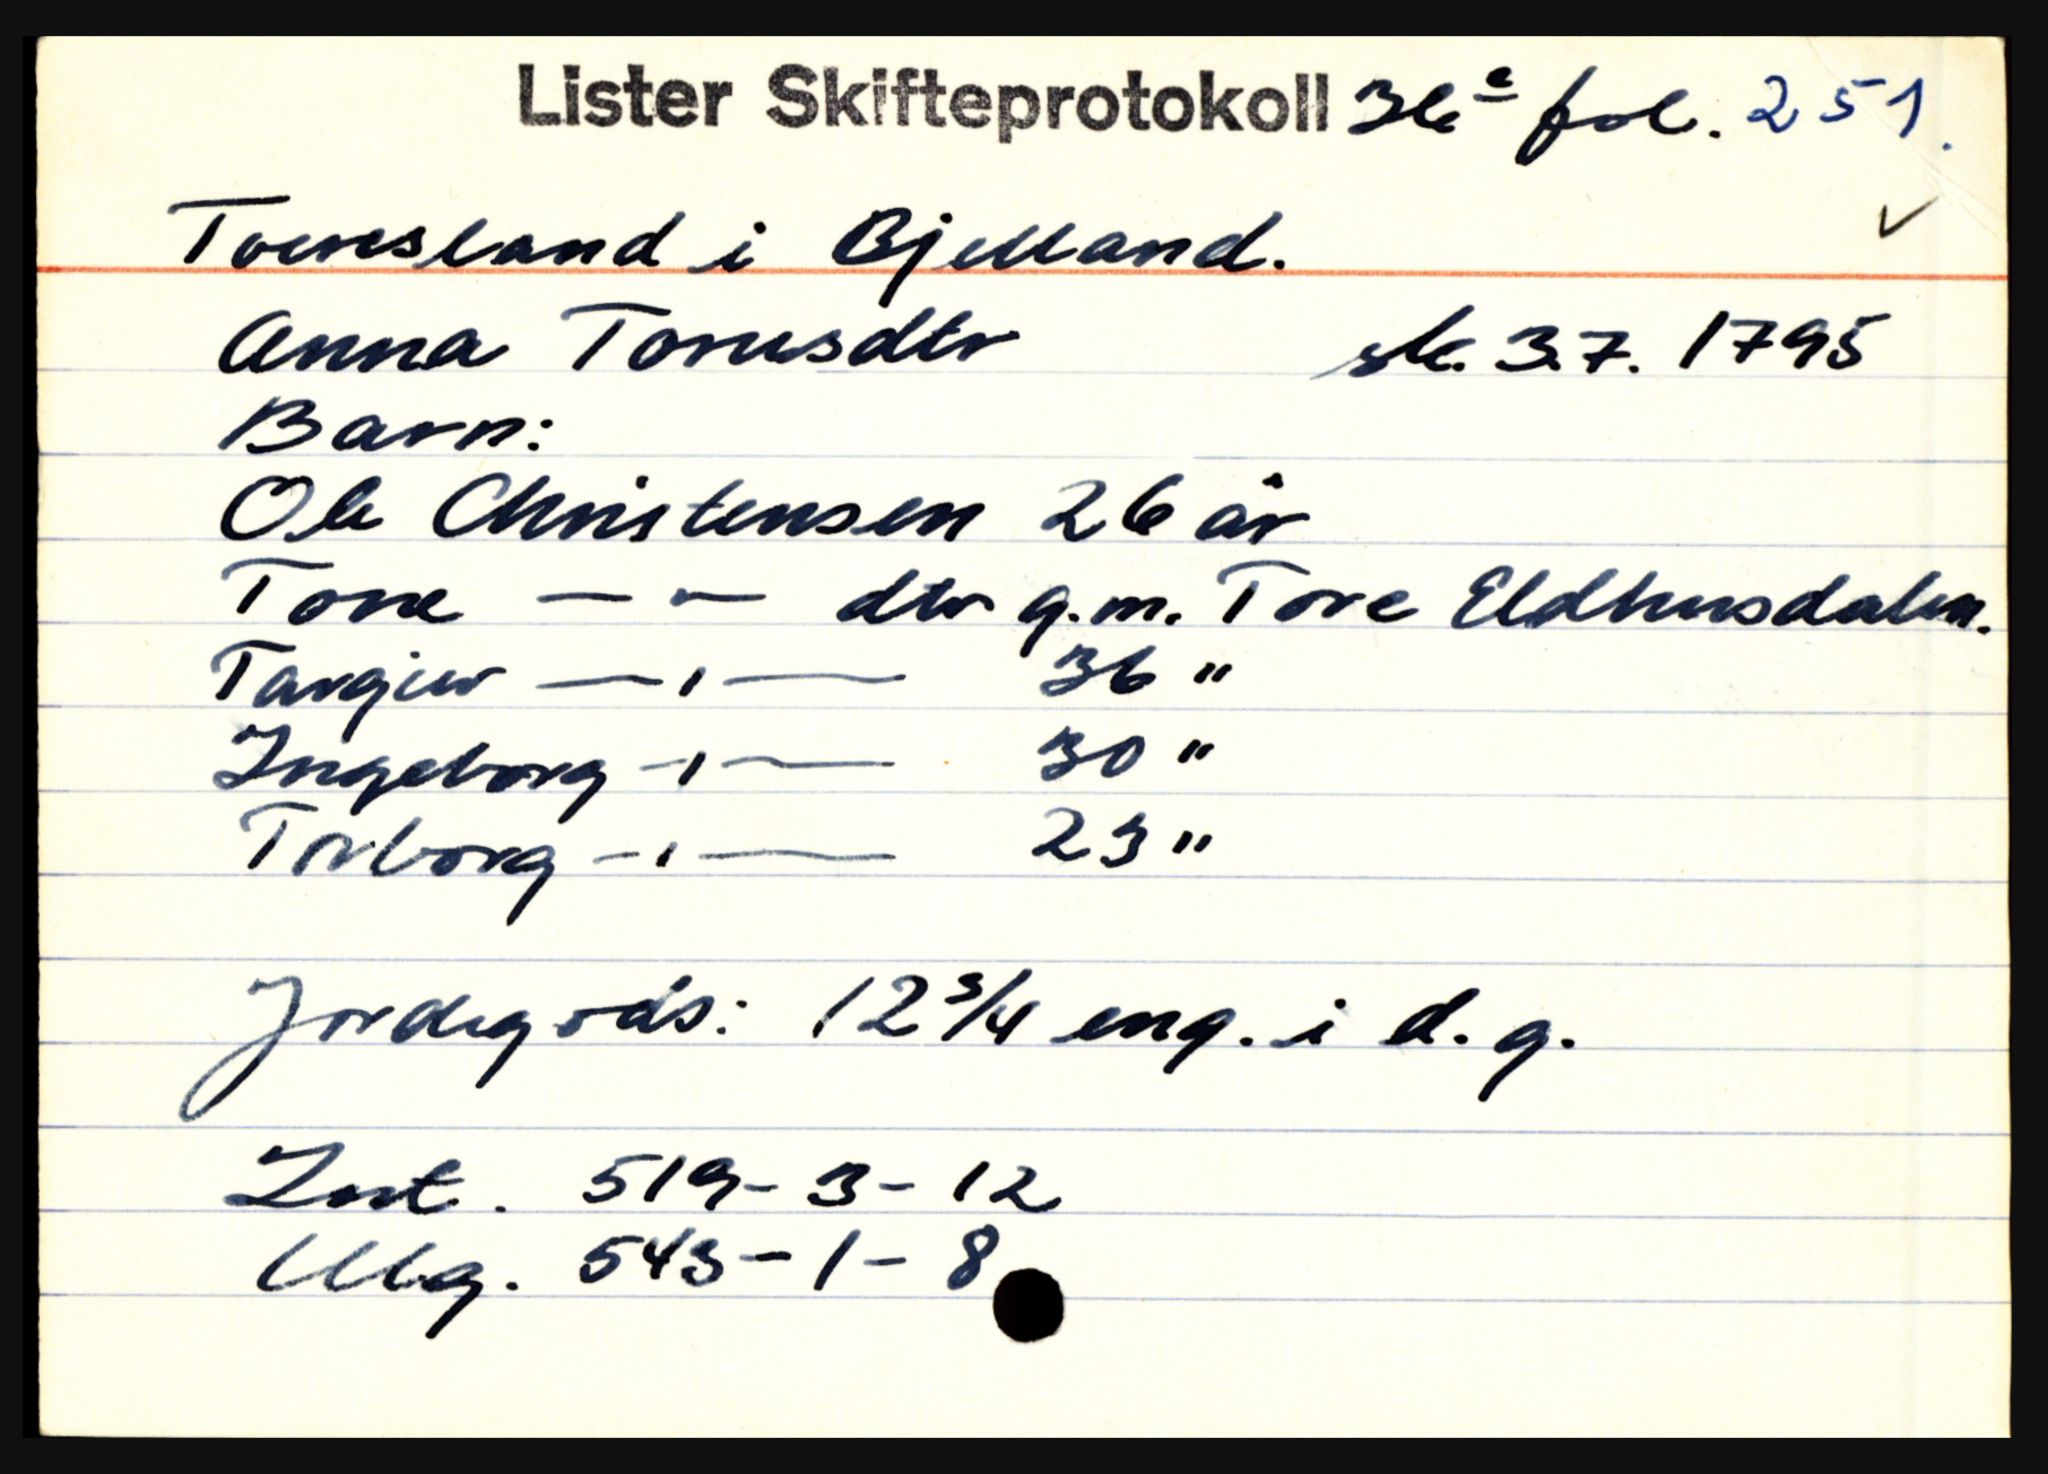 Lister Skifteprotokoll 36c fol. 251.
i Bjelland.
Anna Torusdtr sk. 3.7. 1795
Barn:
Ole Christensen 26 år
Tone — " — dtr g.m. Tore Eldhusdalen.
Targier — " — 36 "
Ingeborg — " — 30 "
Torborg — " — 23 "
Jordegods: 12 3/4 eng. i d. g.
Int. 519 - 3 - 12
Utg. 543 - 1 - 8